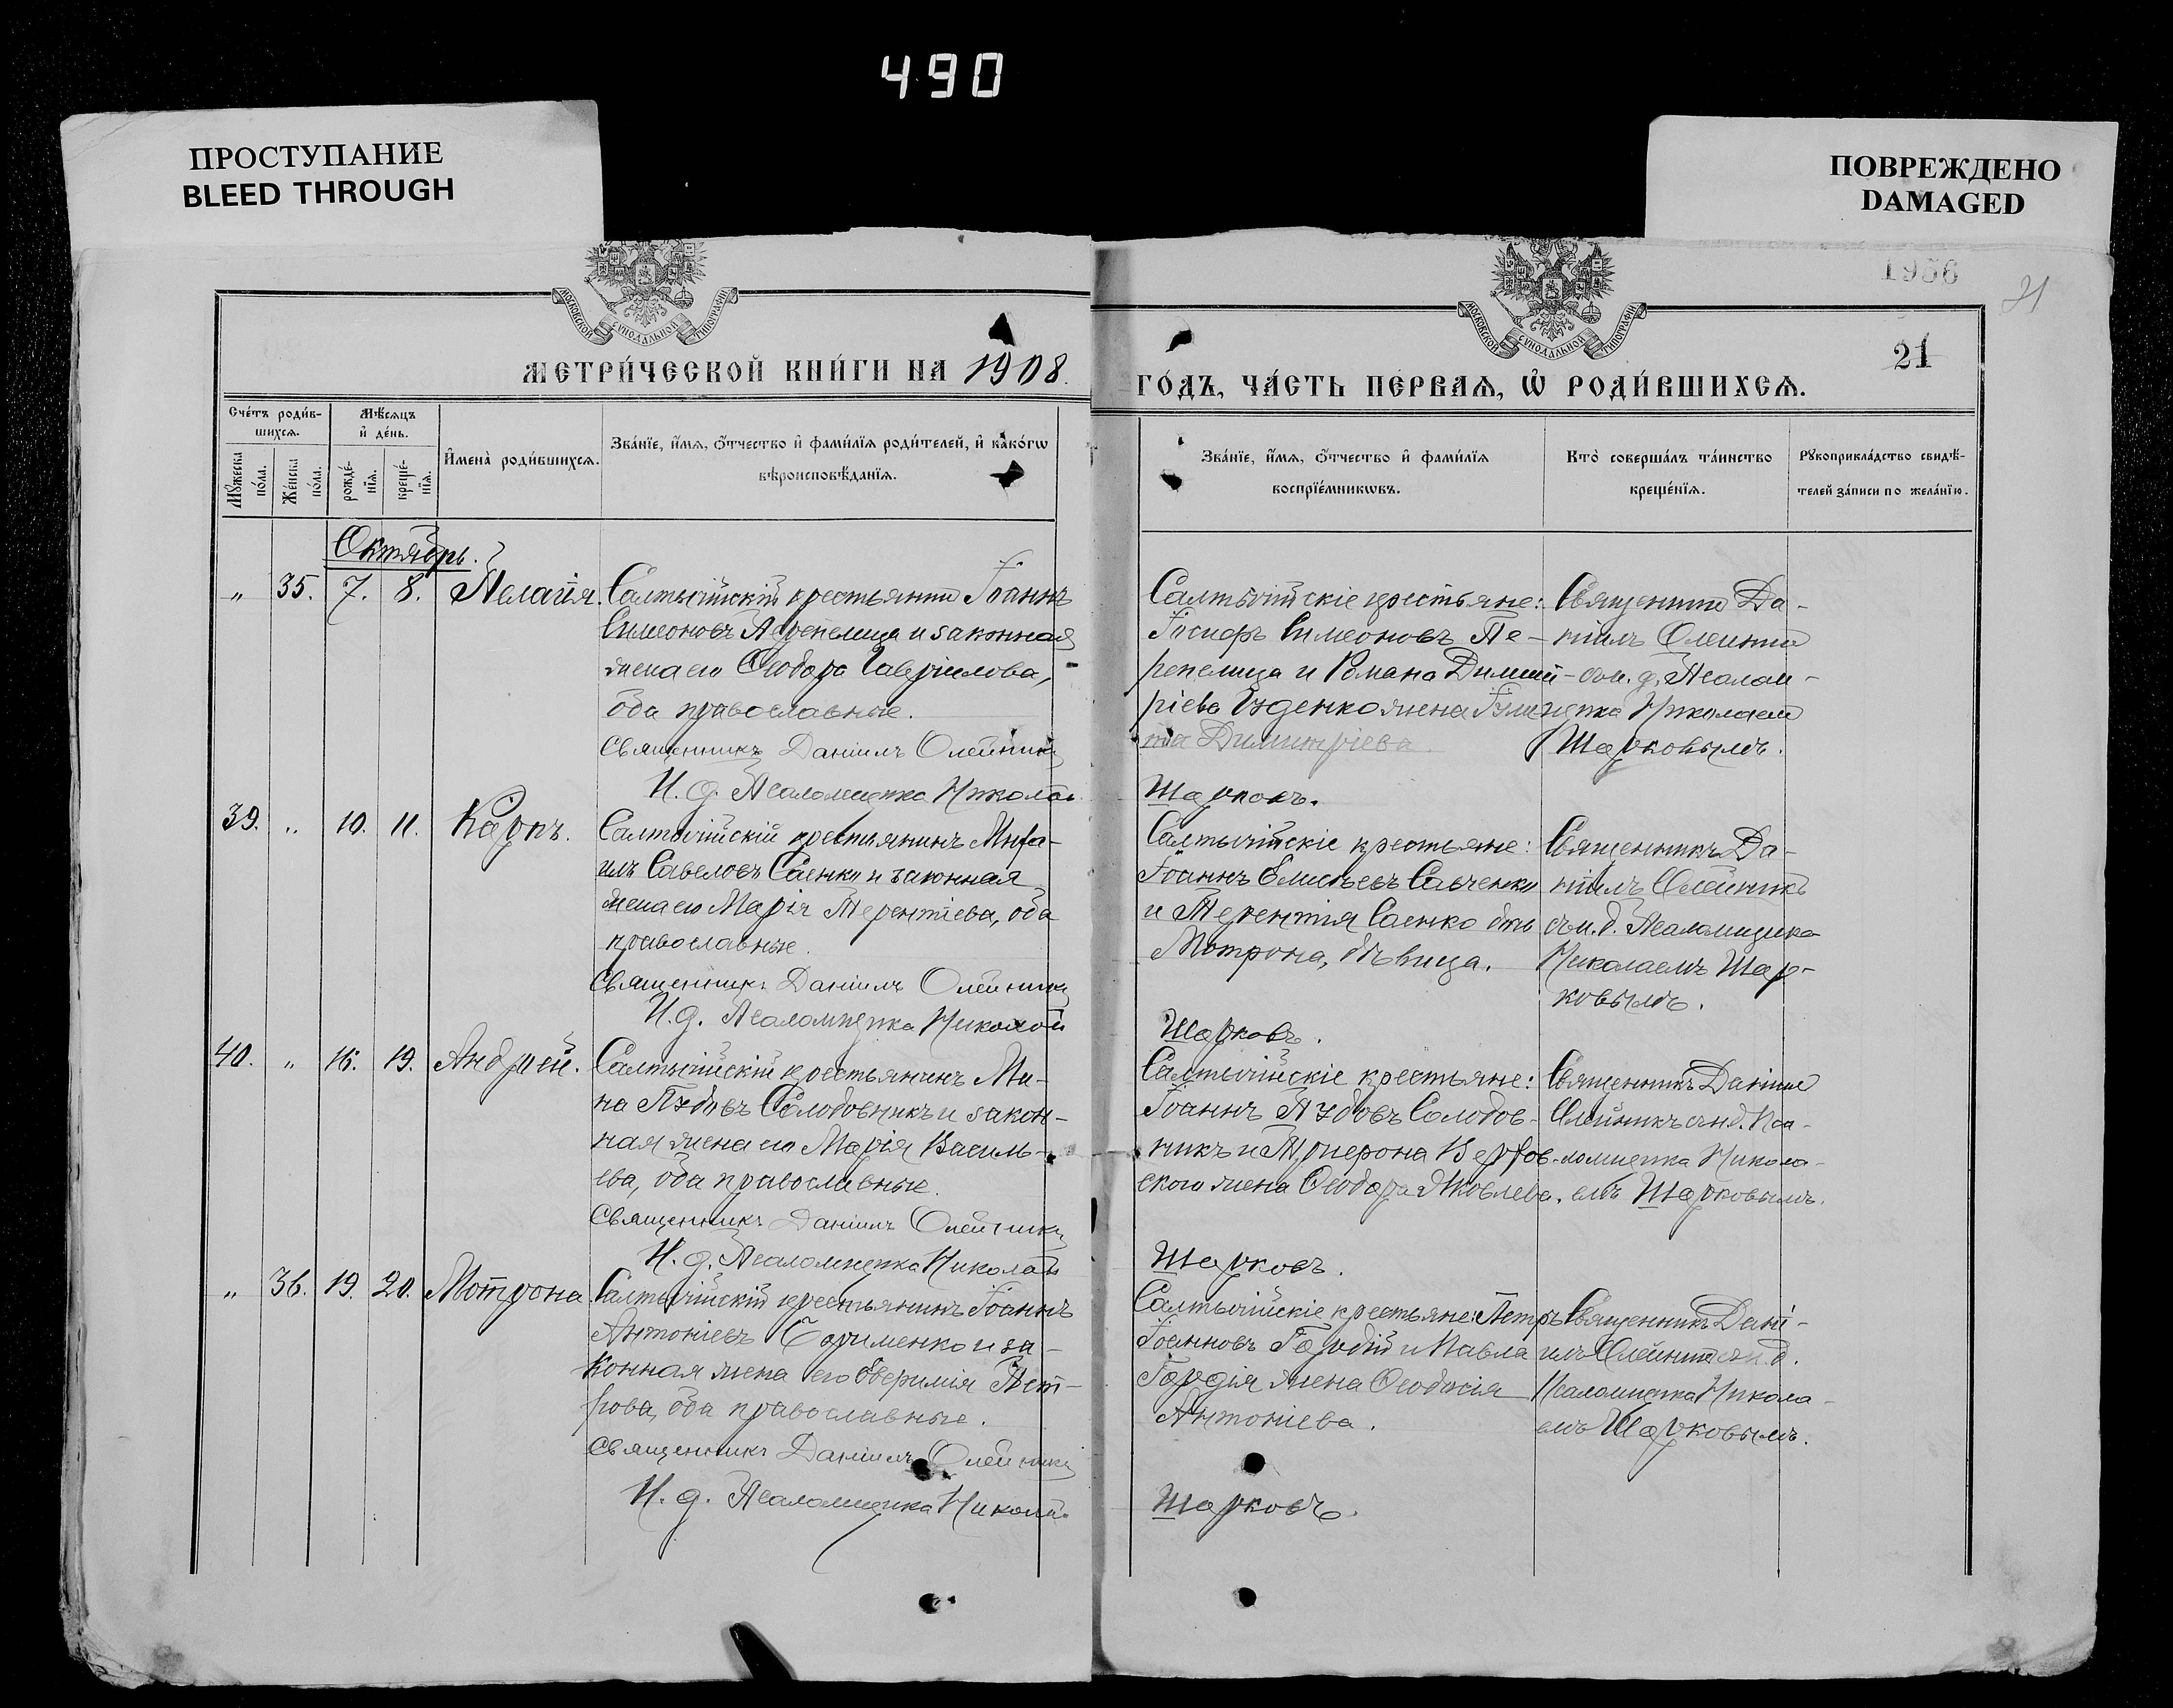 490
ПРОСТУПАНИЕ
BLEED THROUGH
ПОВРЕЖДЕНО
DAMAGED
1956
21
21
МОСКОВСКОЙ СѴНОДАЛЬНОЙ ТИПОГРАФІИ
МОСКОВСКОЙ СѴНОДАЛЬНОЙ ТИПОГРАФІИ
МЕТРИ́ЧЕСКОЙ КНИ́ГИ НА 1908.
ГО́ДЪ, ЧА́СТЬ ПЕ́РВАѦ, Ѡ҆ РОДИ́ВШИХСѦ.
Сче́тъ роди́в-
шихсѧ.
Мꙋ́жеска по́ла.
Же́нска по́ла.
Мѣ́сѧцъ
и҆ де́нь.
рожде́-
нїѧ.
креще́-
нїѧ.
И҆мена̀ роди́вшихсѧ.
Зва́нїе, и҆́мѧ, ѻ҆́тчество и҆ фами́лїѧ роди́телей, и҆ како́гѡ
вѣроисповѣ́данїѧ.
Зва́нїе, и҆́мѧ, ѻ҆́тчество и҆ фами́лїѧ
воспрїе́мникѡвъ.
Кто̀ соверша́лъ та́инство
креще́нїѧ.
Рꙋкоприкла́дство свидѣ́-
телей за́писи по жела́нїю.
Октябрь.
„ 35. 7. 8. Пелагія.
Салтычійскій крестьянинъ Іоаннъ
Симеоновъ Перепелица и законная
жена его Ѳеодора Гавріилова,
оба православные.
Священникъ Даніилъ Олейникъ
И. д. Псаломщика Николай
Салтычійскіе крестьяне:
Іосифъ Симеоновъ Пе-
репелица и Романа Димит-
ріева жена
Димитріева.
Шарковъ.
Священникъ Да-
ніилъ Олейникъ
съ и. д. Псалом-
щика Николаемъ
Шарковымъ.
39. „ 10. 11. Карпъ.
Салтычійскій крестьянинъ Миха-
илъ Савеловъ Саенко и законная
жена его Марія Терентіева, оба
православные.
Священникъ Даніилъ Олейникъ
И. д. Псаломщика Николай
Салтычійскіе крестьяне:
Іоаннъ Елисѣевъ Савченко
и Терентія Саенко дочь
Мотрона, дѣвица.
Шарковъ.
Священникъ Да-
ніилъ Олейникъ
съ и. д. Псаломщика
Николаемъ Шар-
ковымъ.
40. „ 16. 19. Андрей.
Салтычійскій крестьянинъ Ми-
на Іудовъ Солодовникъ и закон-
ная жена его Марія Василь-
ева, оба православные.
Священникъ Даніилъ Олейникъ
И. д. Псаломщика Николай
Салтычійскіе крестьяне:
Іоаннъ Іудовъ Солодов-
никъ и Трифона Верхов-
ского жена Ѳеодора Яковлева.
Шарковъ.
Священникъ Даніилъ
Олейникъ съ и. д. Пса-
ломщика Никола-
емъ Шарковымъ.
„ 36. 19. 20. Мотрона
Салтычійскій крестьянинъ Іоаннъ
Антоніевъ и за-
конная жена его Евфимія Пет-
рова, оба православные.
Священникъ Даніилъ Олейникъ
И. д. Псаломщика Николай
Салтычійскіе крестьяне: Петръ
Іоанновъ Гордій и Павла
Гордія жена Ѳеодосія
Антоніева.
Шарковъ.
Священникъ Дані-
илъ Олейникъ съ и. д.
Псаломщика Никола-
емъ Шарковымъ.